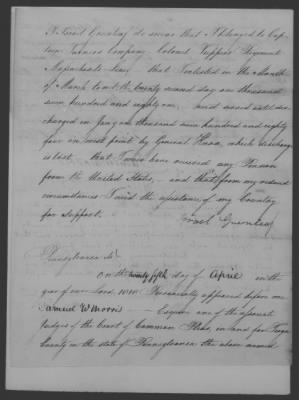 I Israel Greenleaf do swear that I belonged to Cap-
tain Turners Company, Colonel Tuppers Regiment
Massachusetts Line, that I enlisted in the Month
of March to wit the twenty second day one thousand
seven hundred and eighty one, and served until dis-
charged in Jany one thousand seven hundred and eighty
four in west point by General Knox, which discharge
is lost, that I never have received any Pension
from the United States, and that from my reduced
circumstances I need the assistance of my Country
for support.
Israel Greenleaf
Pennsylvania Ss
On the twenty fifth day of April in the
year of our Lord 1818 Personally appeared before me
Samuel W Morris Esquire one of the associate
Judges of the Court of Common Pleas, in and for Tioga
County in the state of Pennsylvania the above named